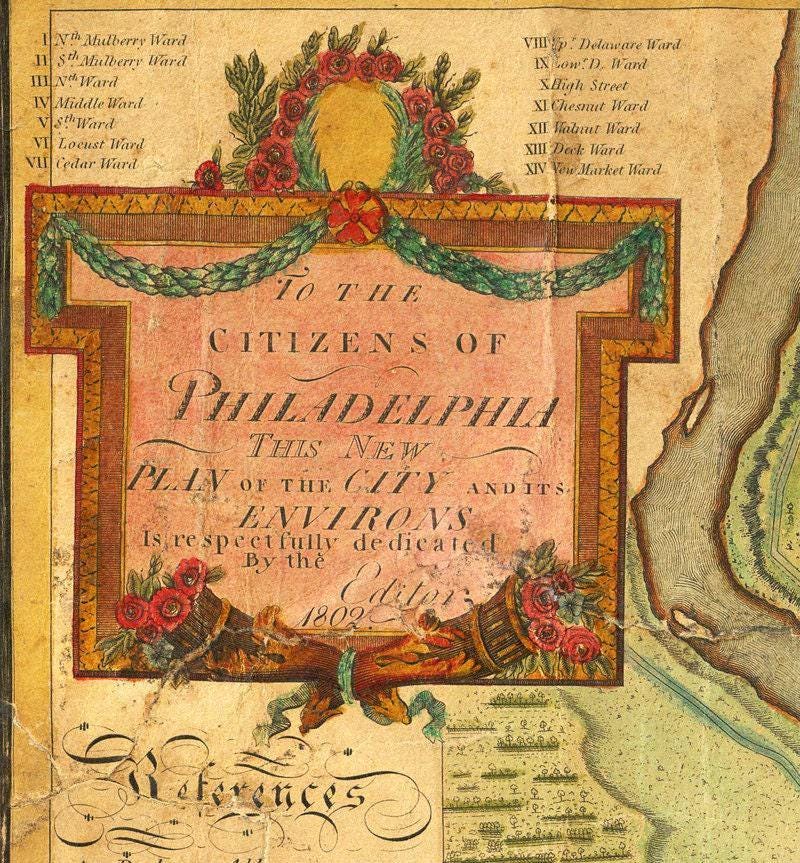 I Nth Mulberry Ward
II Sth Mulberry Ward
III Nth Ward
IV Middle Ward
V Sth Ward
VI Locust Ward
VII Cedar Ward
VIII Upr Delaware Ward
IX Lowr D. Ward
X High Street
XI Chesnut Ward
XII Walnut Ward
XIII Dock Ward
XIV New Market Ward
TO THE
CITIZENS OF
PHILADELPHIA
THIS NEW
PLAN OF THE CITY AND ITS
ENVIRONS
Is respectfully dedicated
By the
Editor
1802.
References